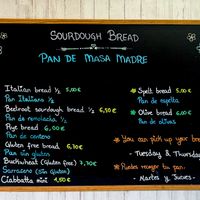 SOURDOUGH BREAD
PAN DE MASA MADRE
Italian bread ½ 5,00€
Pan Italiano ½
Beetroot sourdough bread ½ 6,50€
Pan de remolacha ½
Rye bread 6,00€
Pan de centeno
Gluten free bread 6,70€
Pan sin gluten
Buckwheat (Gluten free) 7,70€
Sarraceno (Sin gluten)
Ciabatta mini 4,90€
Spelt bread 5,00€
Pan de espelta
Olive bread 6,00€
Pan de olivas
You can pick up your bre
- Tuesday & Thursday
Puedes recoger tu pan
Martes y Jueves -